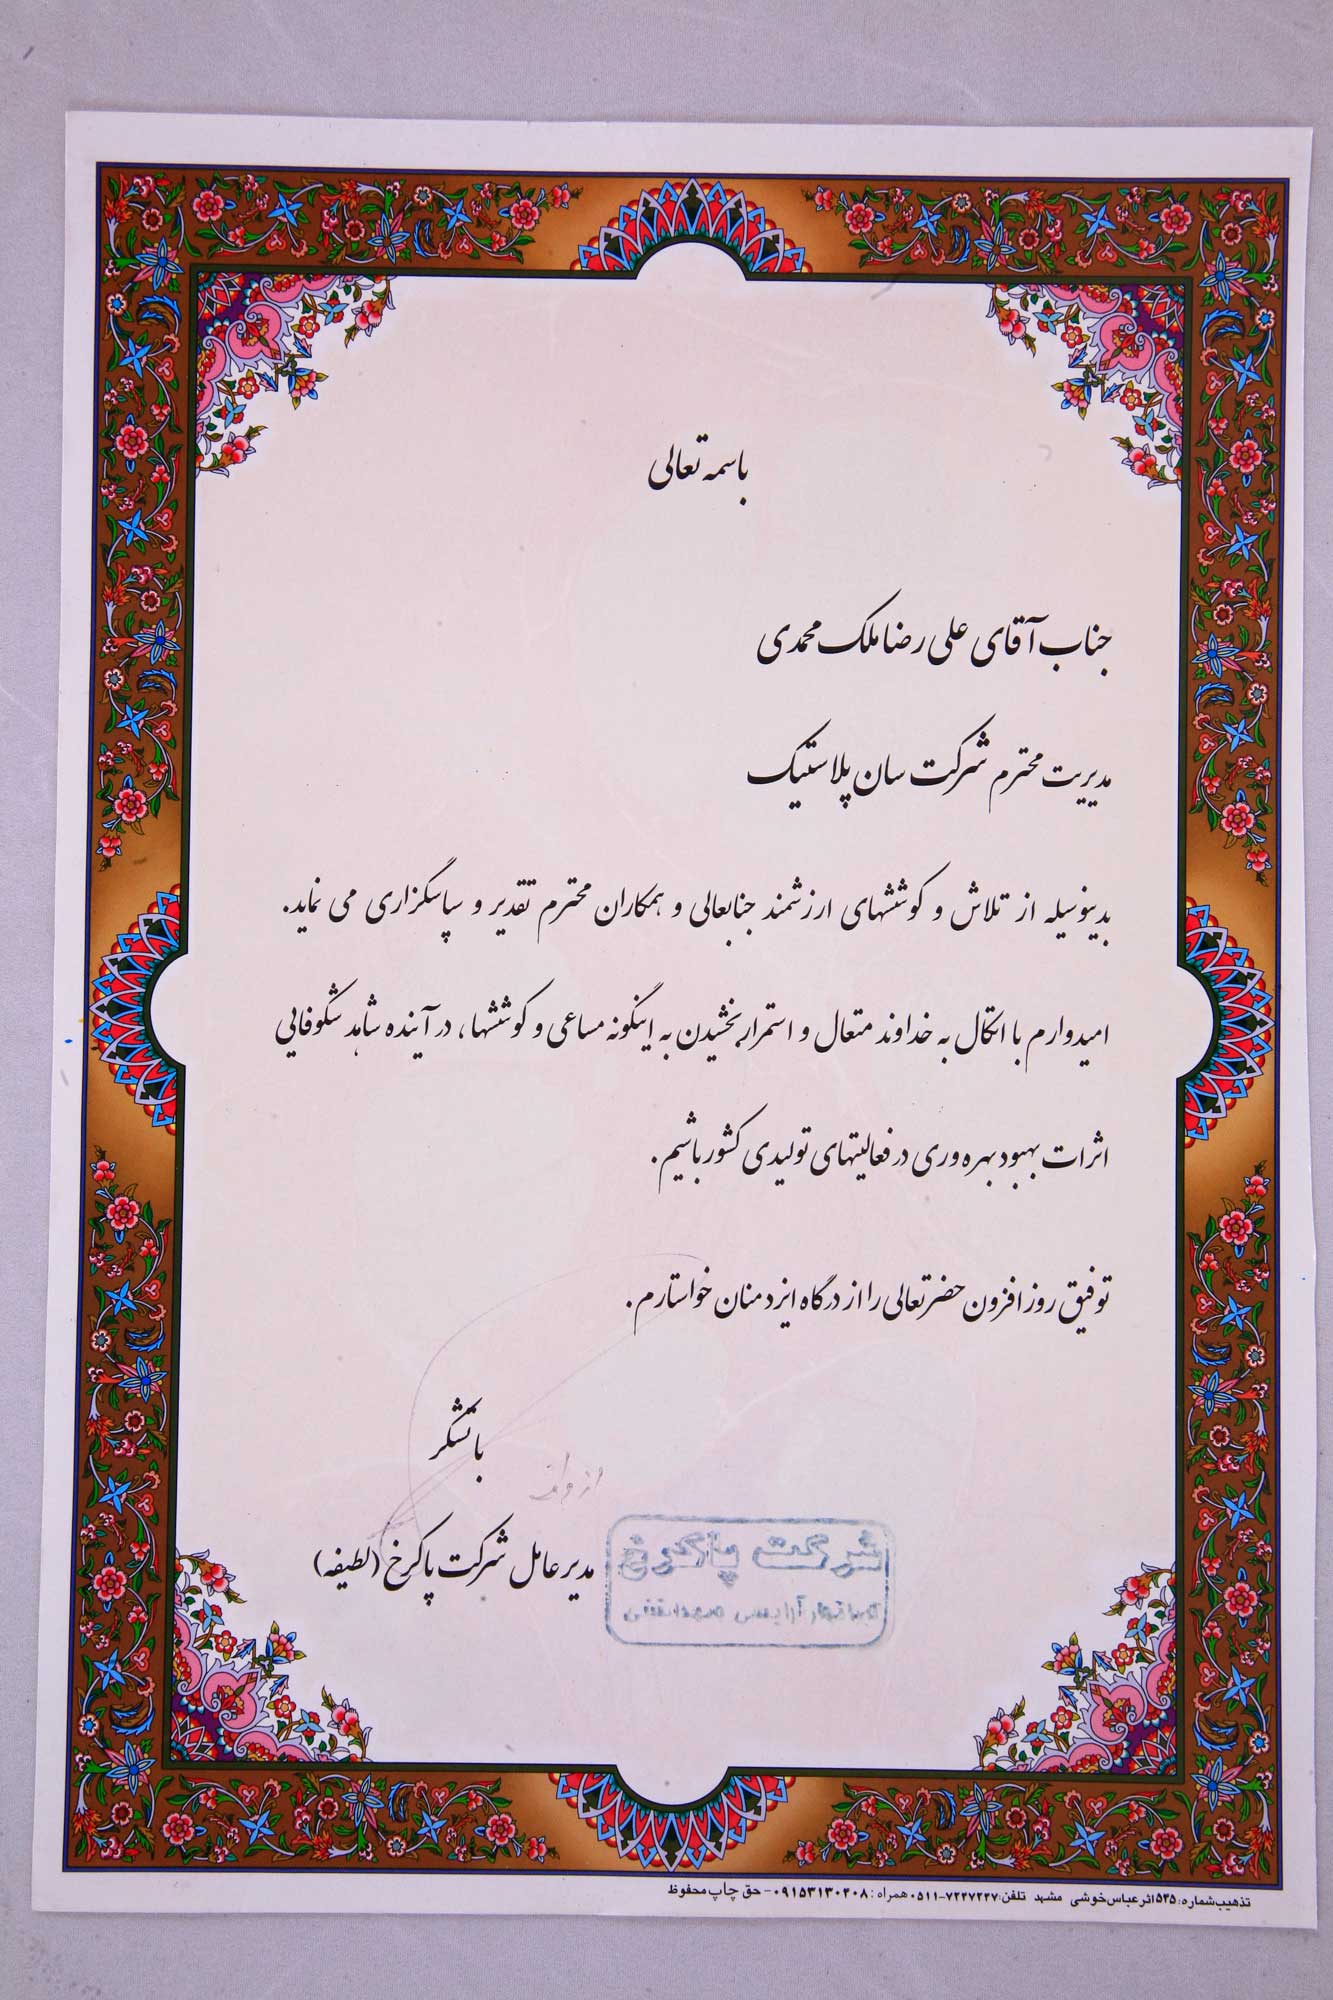 باسمه تعالی
جناب آقای علی رضا ملک محمدی
مدیریت محترم شرکت سان پلاستیک
بدینوسیله از تلاش و کوششهای ارزشمند جنابعالی و همکاران محترم تقدیر و سپاسگزاری می نماید.
امیدوارم با اتکال به خداوند متعال و استمرار بخشیدن به اینگونه مساعی و کوششها، در آینده شاهد شکوفائی
اثرات بهبود بهره وری در فعالیتهای تولیدی کشور باشیم.
توفیق روز افزون حضرتعالی را از درگاه ایزد منان خواستارم.
با تشکر
مدیر عامل شرکت پاکرخ (لطیفه)
شرکت پاکرخ
تذهیب شماره: ۵۲۵ اثر عباس خوشی مشهد تلفن: ۷۲۴۷۲۲۷-۰۵۱۱ همراه: ۰۹۱۵۳۱۳۰۲۰۸ - حق چاپ محفوظ